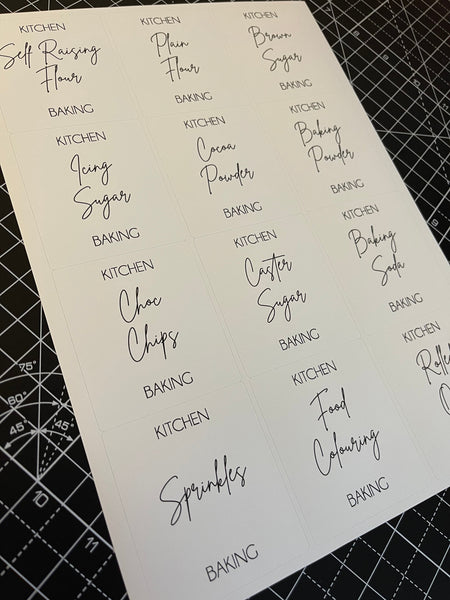 KITCHEN
Self Raising
Flour
BAKING
KITCHEN
Plain
Flour
BAKING
KITCHEN
Brown
Sugar
BAKING
KITCHEN
Icing
Sugar
BAKING
KITCHEN
Cocoa
Powder
BAKING
KITCHEN
Baking
Powder
BAKING
KITCHEN
Choc
Chips
BAKING
KITCHEN
Caster
Sugar
BAKING
KITCHEN
Baking
Soda
BAKING
KITCHEN
Sprinkles
BAKING
KITCHEN
Food
Colouring
BAKING
KITCHEN
75°
60°
45°
45
10
11